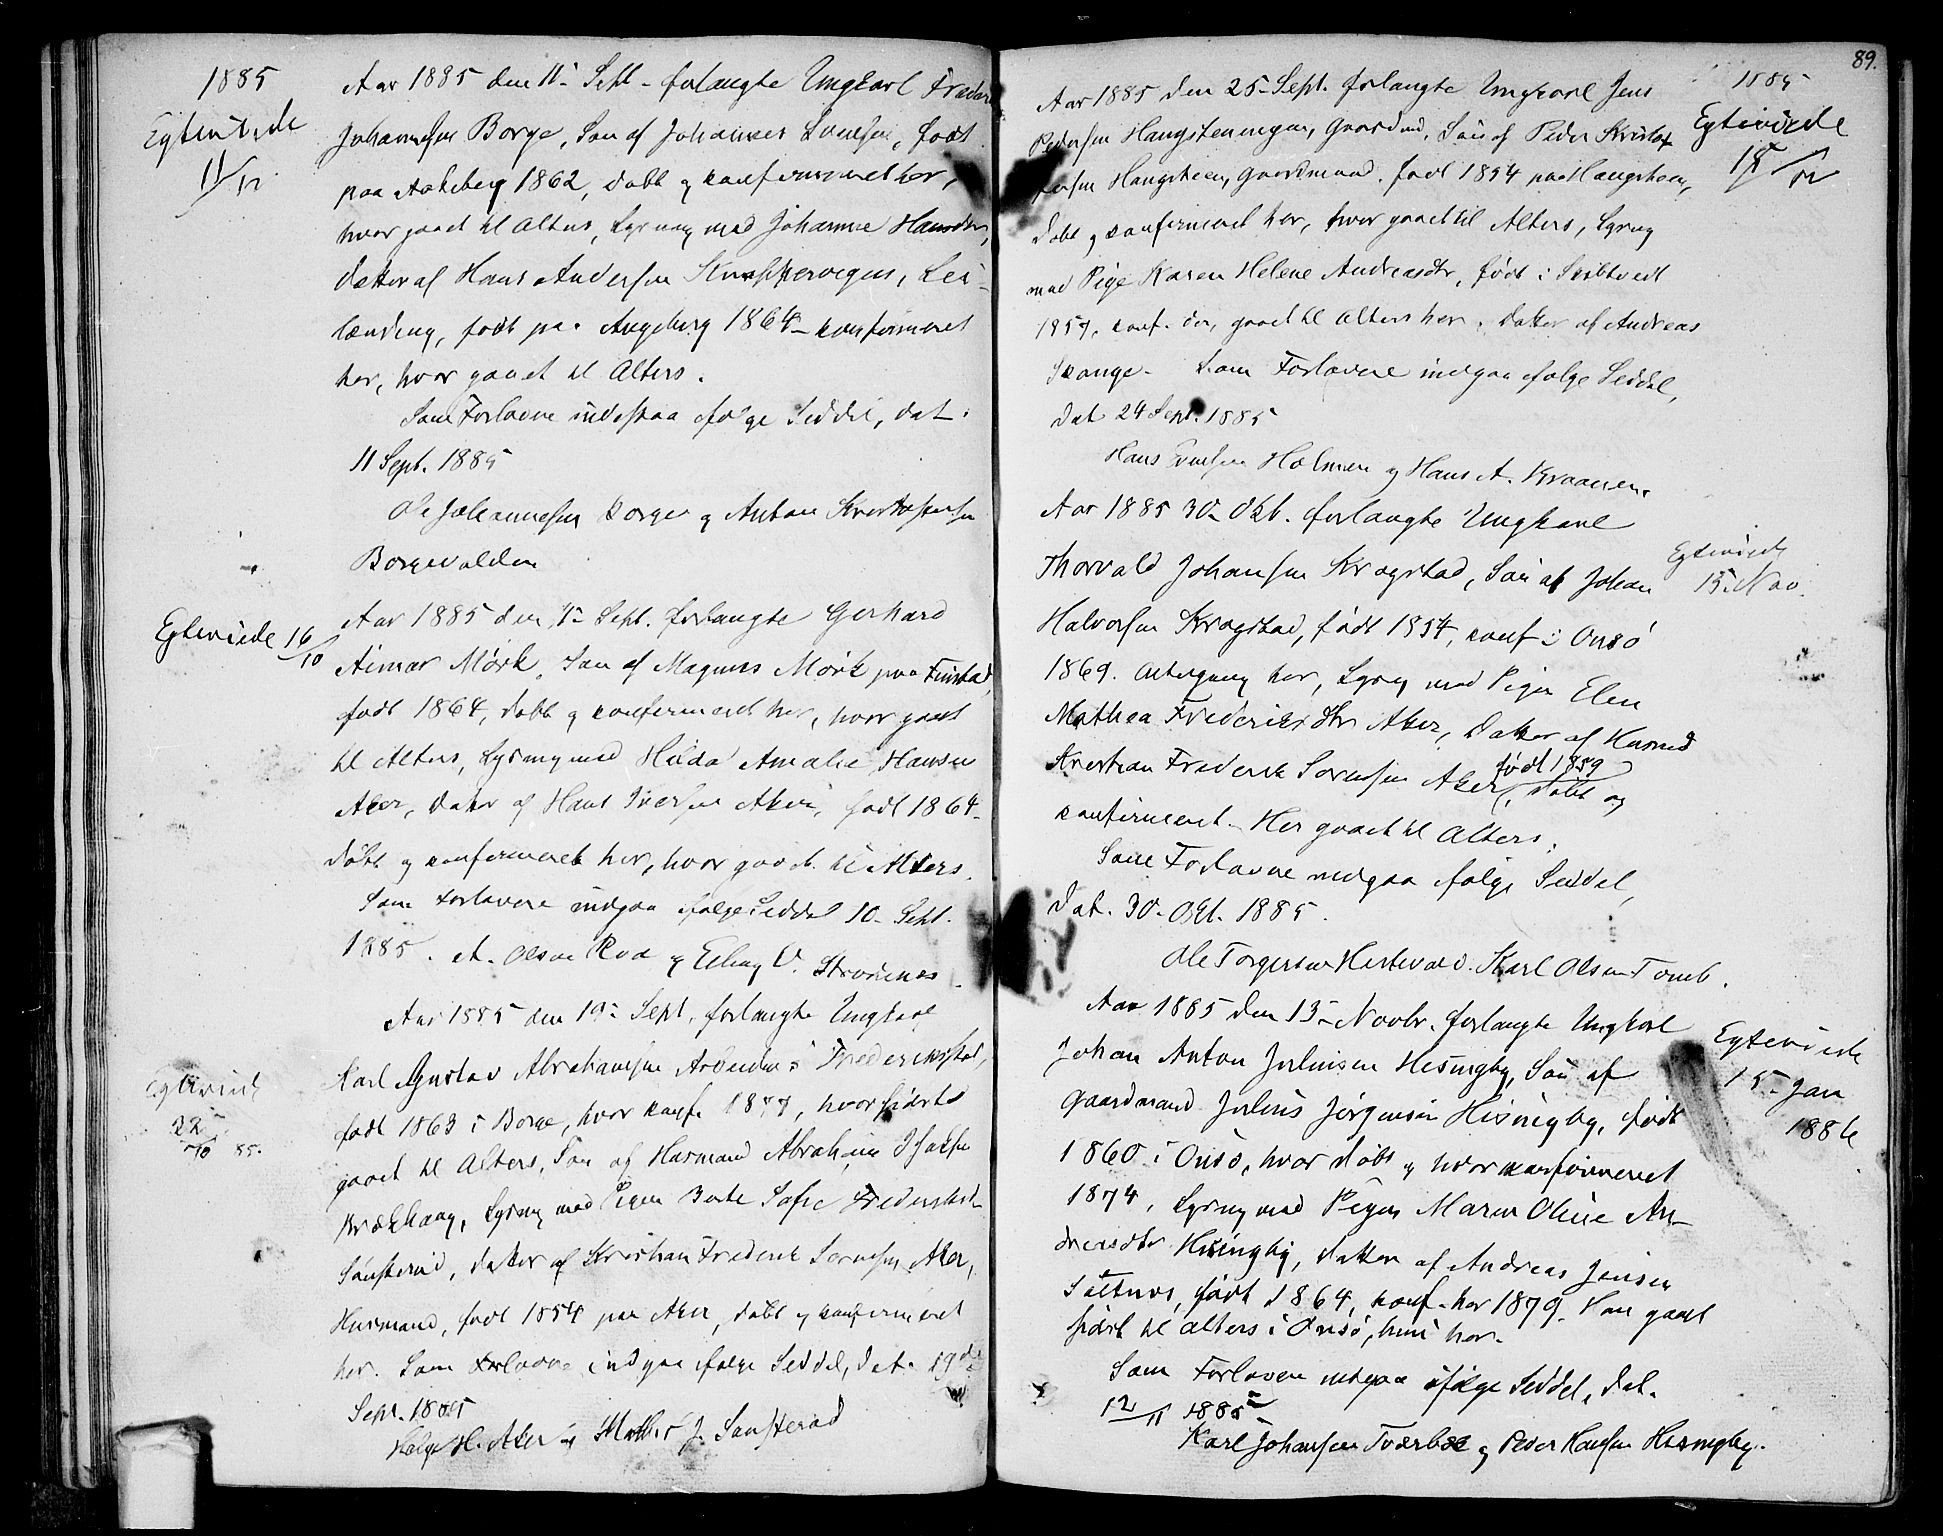 1885
Egteviede
11/12
Aar 1885 den 11- Sept - forlangte Ungkarl
Johannesen Borge, Søn af Johannes født
paa 1862, døbt og confirmeret her,
hvor gaaet til Alters, Lysning med Johanne Hansdtr,
datter af Hans Andersen Lei-
lænding, født paa 1864 - confirmeret
her, hvor gaaet til Alters.
Som Forlovere indestaa ifølge Seddel, dat.
11 Sept. 1885
Ole Johannesen Borge og Anton Kristofersen
Borgevolden
Egteviede 16/10
Aar 1885 den Sept. forlangte Gerhard
Aimar Mørk, Søn af Magnus Mørk paa
født 1864, døbt og confirmeret her, hvor gaaet
til Alters, Lysning med Hilda Amalie Hansen
Aker, datter af Hans Iversen Aker, født 1864-
døbt og confirmeret her, hvor gaaet til Alters.
Som Forlovere indgaa ifølge Seddel 10- Sept.
1885. A. Olsen Rød og
Egteviede
22/10 85.
Aar 1885 den 19- Sept. forlangte Ungkarl
Karl Gustav Abrahamsen Arbeider i Frederikstad,
født 1863 i Borge, hvor conf. hvor sidst
gaaet til Alters, Søn af Husmand Abraham
Lysning med Pigen Berte Sofie
datter af Kristian Frederik Sørensen Aker,
Husmand, født 1854 paa Aker, døbt og confirmeret
her. Som Forlovere indgaa ifølge Seddel, dat. 19de
Sept. 1885
Helge H. Aker og J. Sønsterød
89.
1885
Egteviede
Aar 1885 den 25- Sept. forlangte Ungkarl Jens
Pedersen Gaardmd, Søn af Peder Kristof
fersen Haugsteen, Gaardmand. født 1854 paa Haugsteen,
døbt og confirmeret her, hvor gaaet til Alters, Lysning
med Pige Karen Helene Andreasdtr, født i Skibtvedt
conf. der, gaaet til Alters her, datter af Andreas
Skange. Som Forlovere indgaa ifølge Seddel,
dat 24 Sept. 1885
Hans Evensen Holmen og Hans A.
Egteviede
15. Nov.
Aar 1885 30- Okt. forlangte Ungkarl
Thorvald Johansen Krogstad, Søn af Johan
Halvorsen Krogstad, født 1854, conf i Onsø
1869. Altergang her, Lysning med Pigen Elen
Mathea Frederiksdtr Aker, datter af Husmd
Kristian Frederik Sørensen Aker, født 1859 døbt og
confirmeret. Her gaaet til Alters.
Som Forlovere indgaa ifølge Seddel,
dat. 30- Okt. 1885.
Ole Torgersen Karl Olsen Tomb.
Egteviede
15- Jan
1886
Aar 1885 den 13- Novbr. forlangte Ungkarl
Johan Anton Juliussen Hisingby, Søn af
Gaardmand Julius Jørgensen Hisingby, født
1860 i Onsø, hvor døbt og hvor confirmeret
1874, Lysning med Pigen Maren Oline An-
dreasdtr Hisingby, datter af Andreas Jensen
født 1864, conf. her 1879. Han gaaet
sidst til Alters i Onsø, hun her.
Som Forlovere indgaa ifølge Seddel, dat.
12/11 1885
Karl Johansen og Peder Hansen Hisingby.